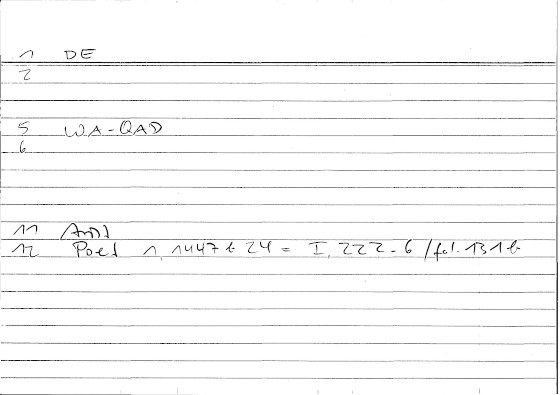 1 DE
2
5 WA-QAD
6
11 And
12 Poet 1, 1447 b 24 = I, 222-6 / fol. 131 b